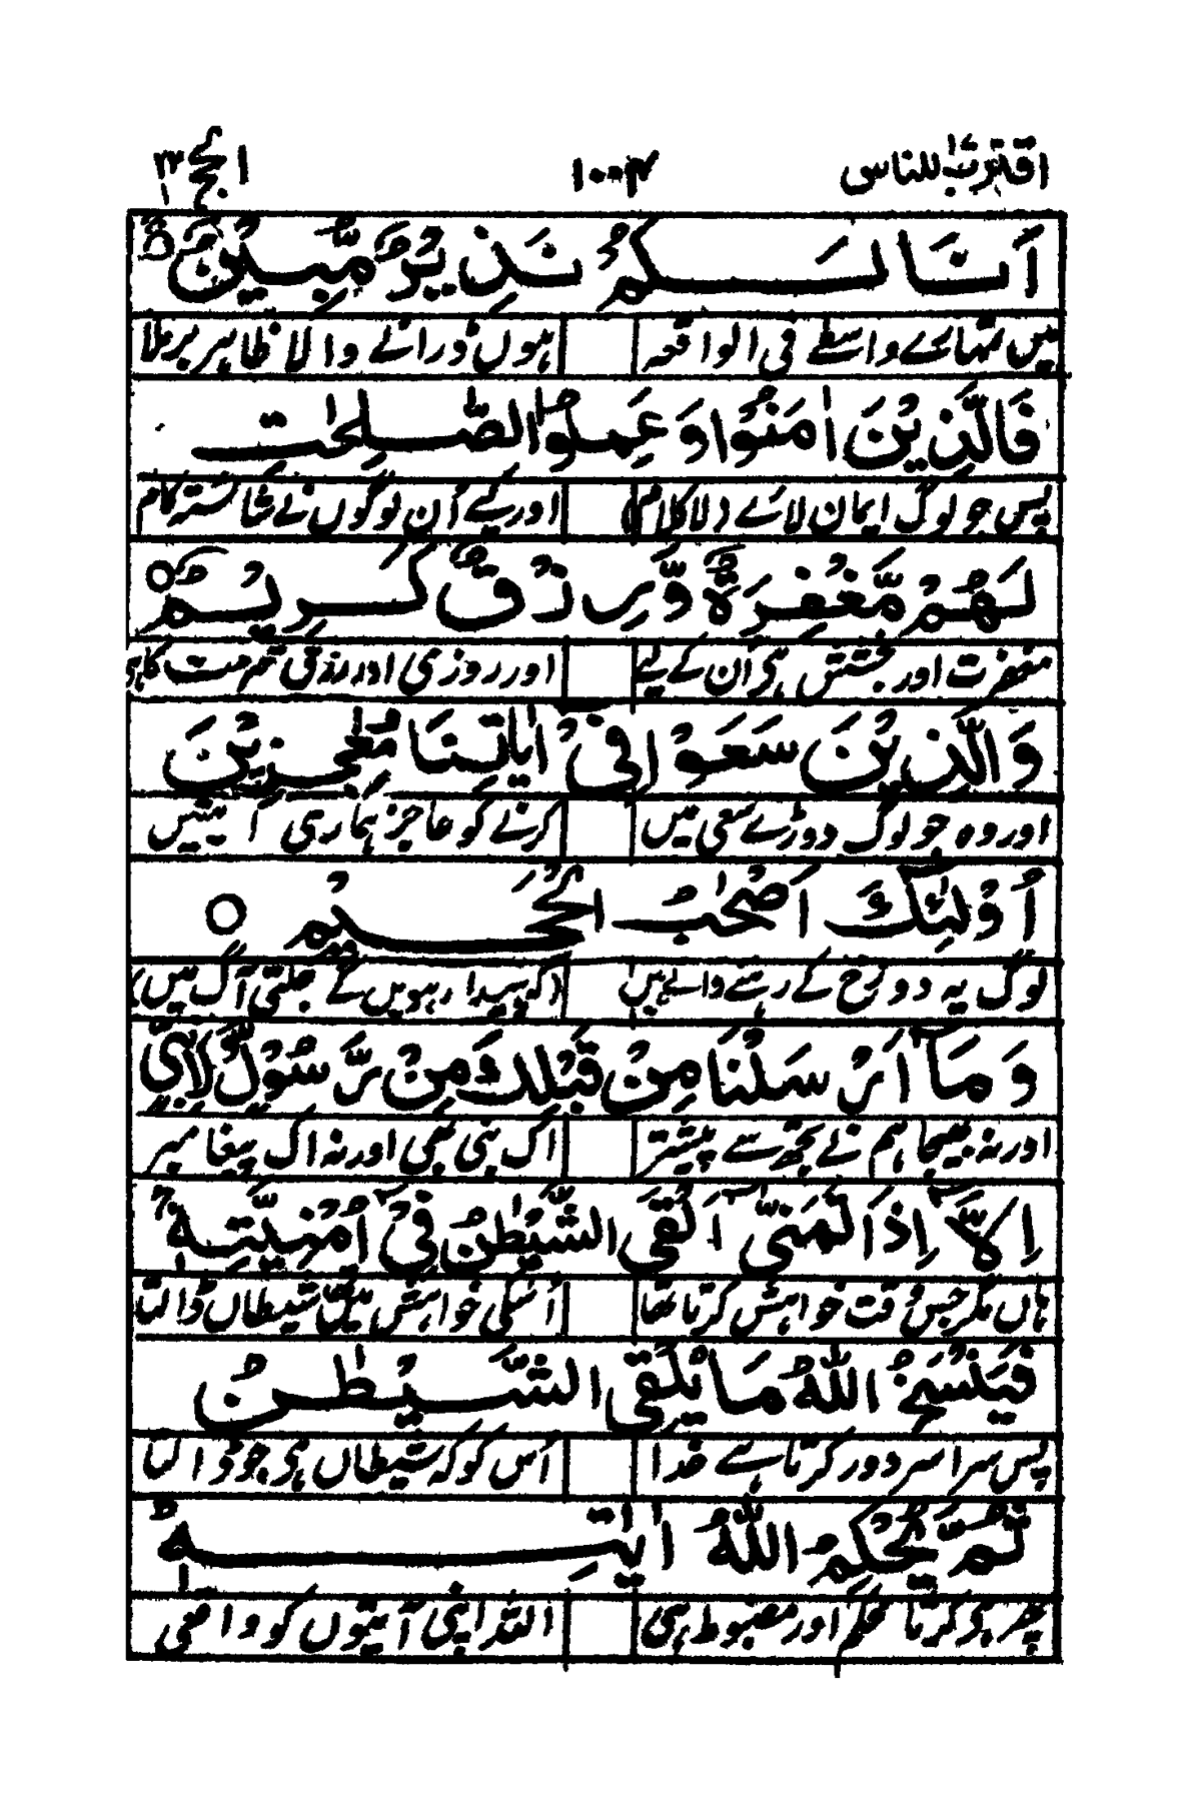 اقترب للناس ۱۰۰۴ الحج ۲۲
اَنَا لَـكُمْ نَذِيْرٌ مُّبِيْنٌ ۚ
میں تمہارے واسطے فی الواقعہ ہوں ڈرانے والا ظاہر برملا
فَالَّذِيْنَ اٰمَنُوْا وَعَمِلُوا الصّٰلِحٰتِ
پس جو لوگ ایمان لائے (لا کلام) اور کیے اُن لوگوں نے شائستہ کام
لَهُمْ مَّغْفِرَةٌ وَّرِزْقٌ كَرِيْمٌ ○
مغفرت اور بخشش ہی اُن کے لیے اور روزی اور رزق
وَالَّذِيْنَ سَعَوْا فِيْۤ اٰيٰتِنَا مُعٰجِزِيْنَ
اور وہ جو لوگ دوڑے سعی میں کرنے کو عاجز ہماری آیتیں
اُولٰٓئِكَ اَصْحٰبُ الْجَحِيْمِ ○
لوگ یہ دوزخ کے رہنے والے ہیں جلتی آگ میں)
وَمَاۤ اَرْسَلْنَا مِنْ قَبْلِكَ مِنْ رَّسُوْلٍ وَّلَا نَبِيٍّ
اور نہ بھیجا ہم نے تجھ سے پیشتر اک نبی بھی اور نہ اک پیغامبر
اِلَّاۤ اِذَا تَمَنّٰۤى اَلْقَى الشَّيْطٰنُ فِيْۤ اُمْنِيَّتِهٖ ۚ
ہاں مگر جس وقت خواہش کرتا تھا اُسکی خواہش میں شیطاں ڈالتا
فَيَنْسَخُ اللّٰهُ مَا يُلْقِى الشَّيْطٰنُ
پس سراسر دور کرتا ہے خدا اُس کو کہ شیطاں ہی جو التا
ثُمَّ يُحْكِمُ اللّٰهُ اٰيٰتِهٖ ؕ
پھر ہی کرتا محکم اور مضبوط ہی اللہ اپنی آیتوں کو واقعی